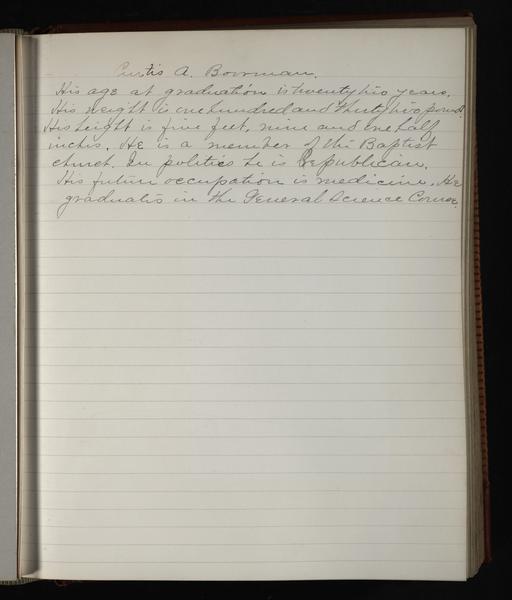 Curtis A. Bowman.
His age at graduation is twenty two years.
His weight is one hundred and thirty two pounds.
His height is five feet, nine and one half
inches. He is a member of the Baptist
church. In politics he is Republican.
His future occupation is medicine. He
graduates in the General Science Course.